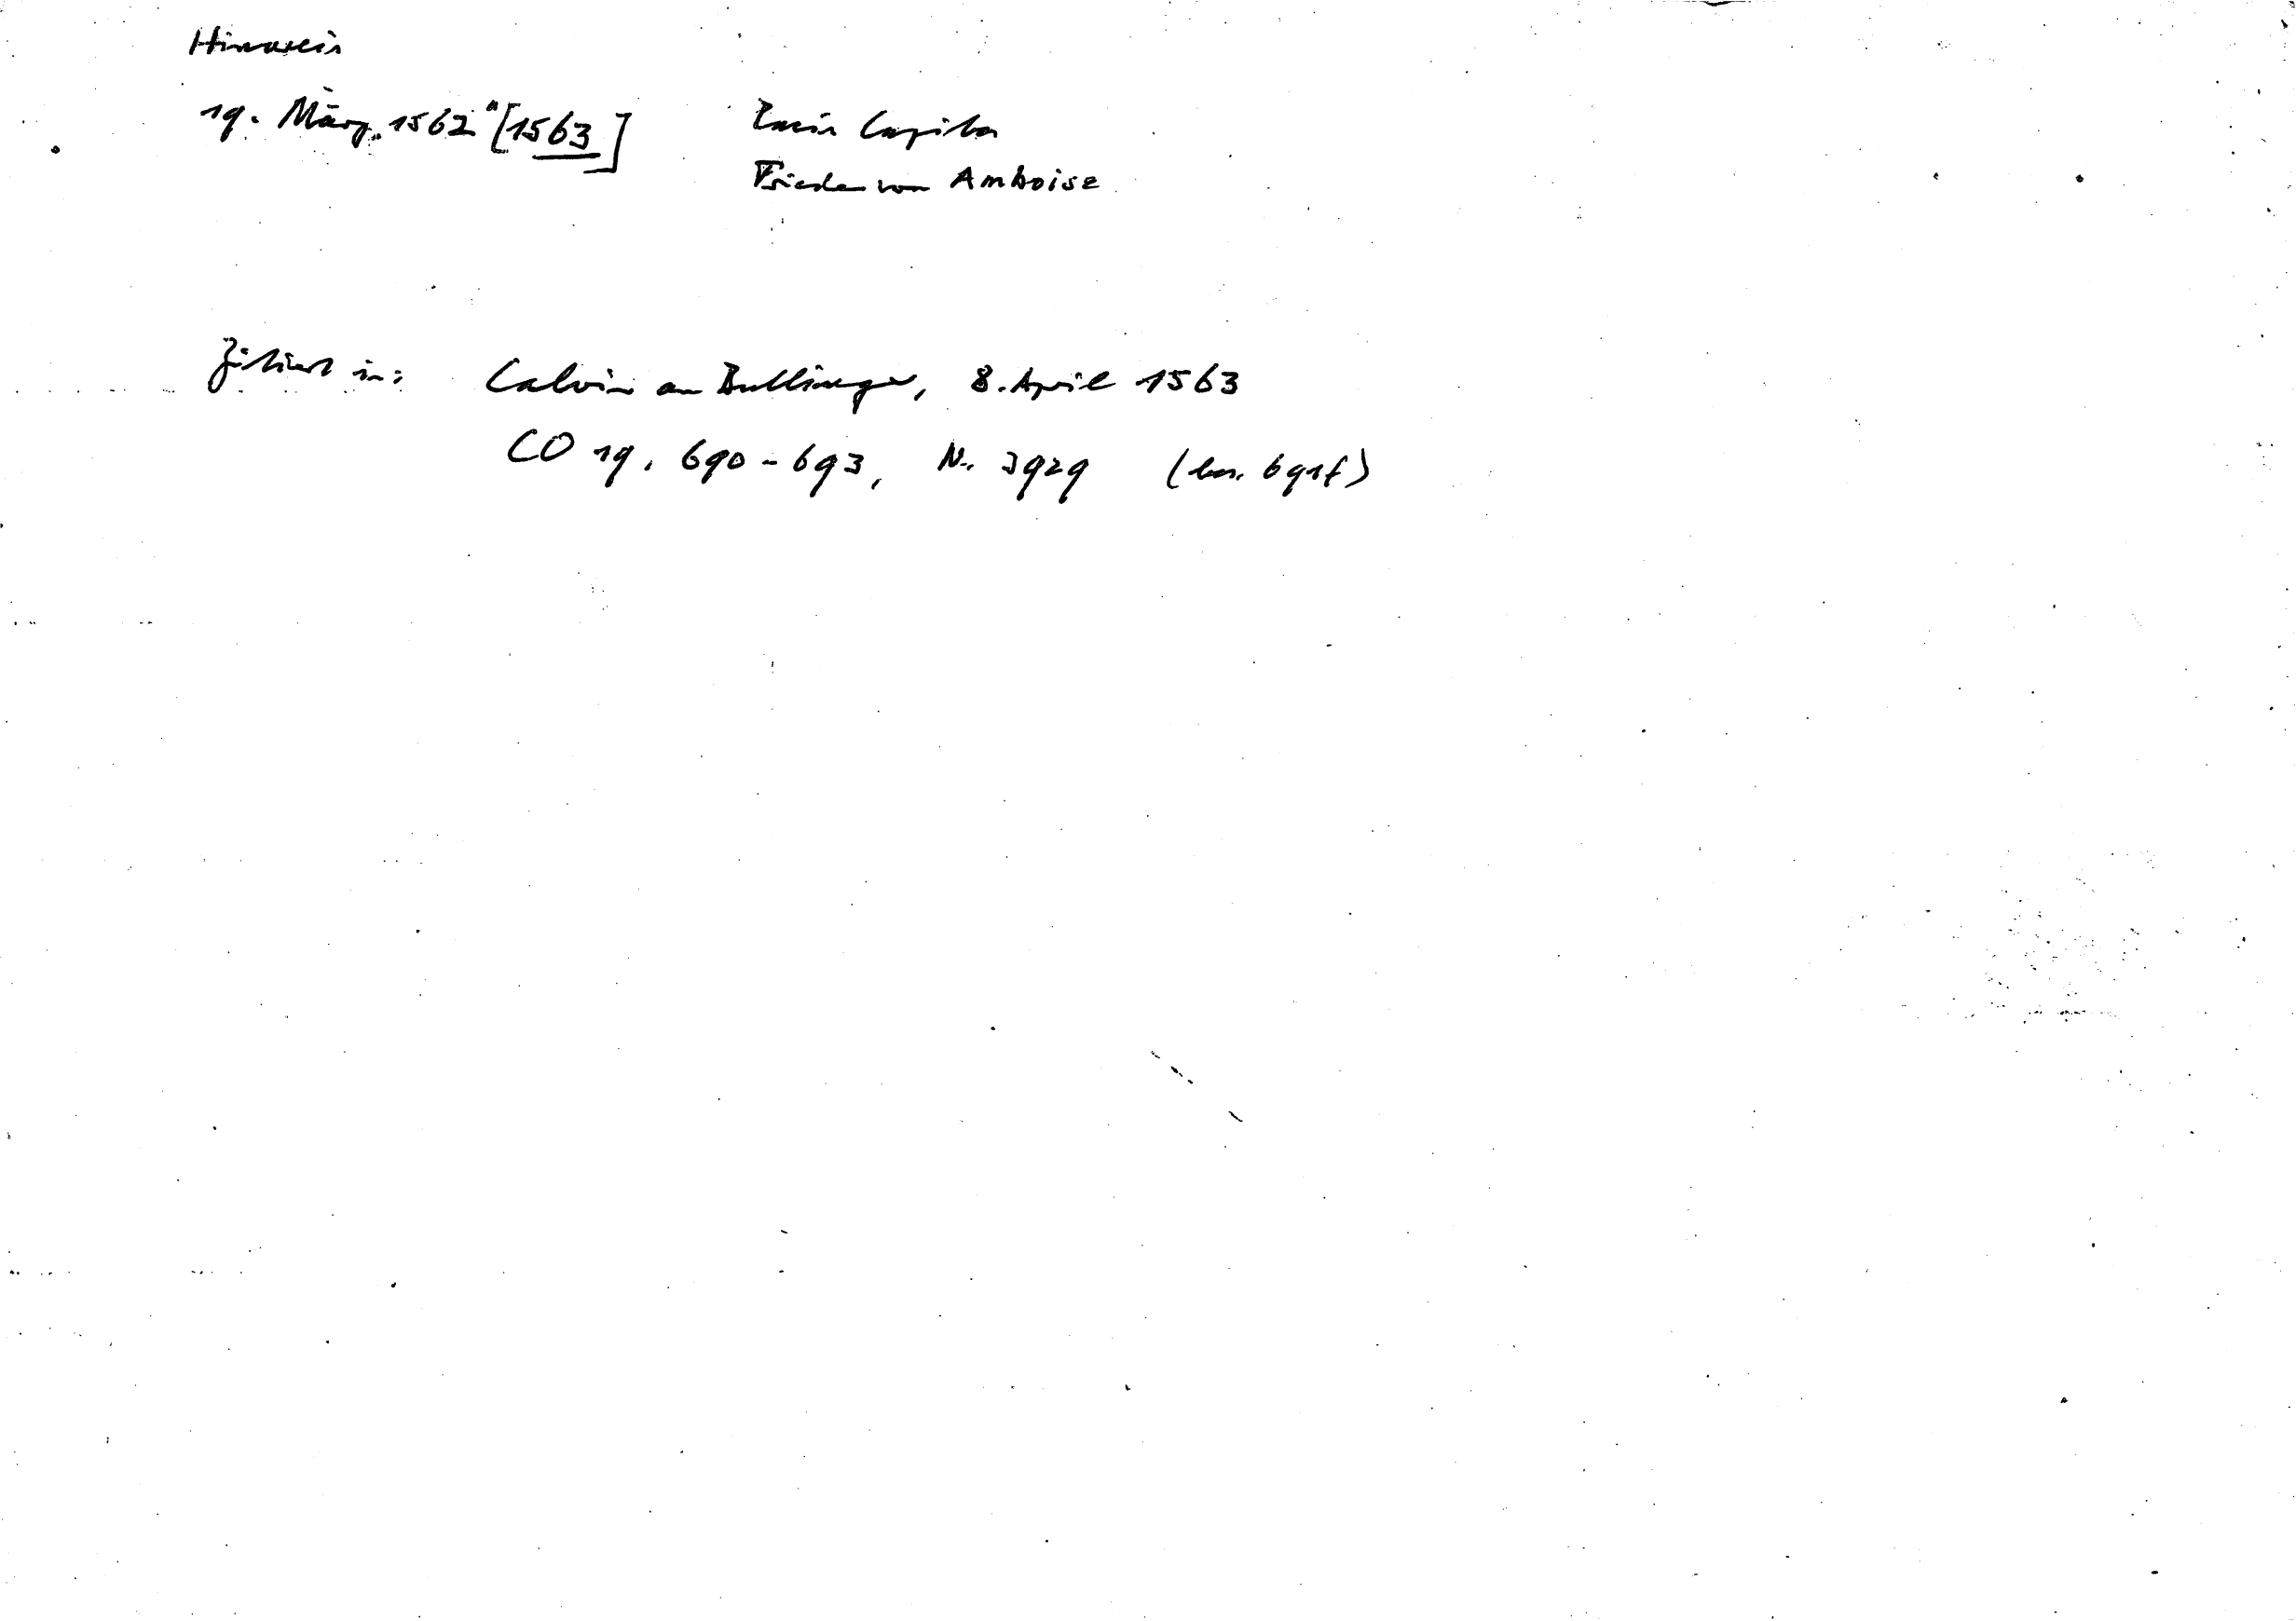 Hinweis
19. März 1562" [1563] Pacis Capita
Friede von Amboise
Zitiert in: Calvin an Bullinger, 8. April 1563
CO 19, 690-693, Nr. 3929 (bes. 691f)